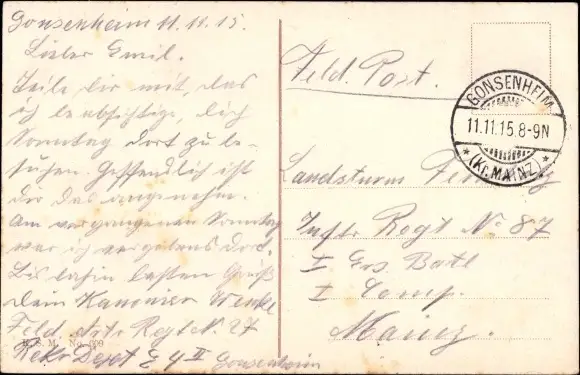 Gonsenheim 11.11.15.
Lieber Emil.
Teile dir mit, das
ich beabsichtige, dich
Sonntag dort zu be-
suchen. Hoffendlich ist
dir das angenehm.
Am vergangenen Sonntag
war ich vergebens dort.
Bis dahin besten Gruß
dein Kanonier
Feld Arti Regt N. 27
Rekr Depot II Gonsenheim
R. & M. No. 009
Feld. Post.
GONSENHEIM
11.11.15.8-9N
* (Kr. MAINZ) *
Landsturm
Inftr Regt No 87
I Ers. Batl
I Comp.
Mainz.